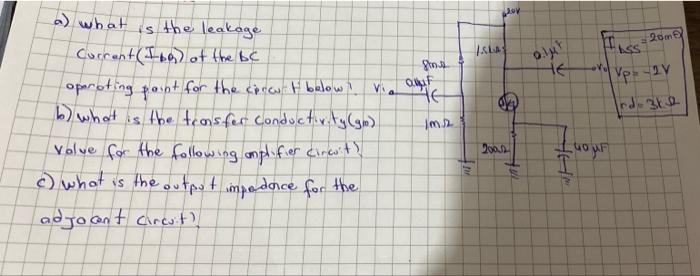 a) what is the leakage
Current (IDQ) of the DC
operating point for the circuit below?
b) what is the transfer conductivity (gm)
value for the following amplifier circuit?
c) what is the output impedance for the
adjacent circuit?
20V
1.5kΩ
0.1μF
Vo
8mΩ
Vi
1mΩ
200Ω
40μF
IDSS = 20mA
Vp = -2V
rd = 3kΩ